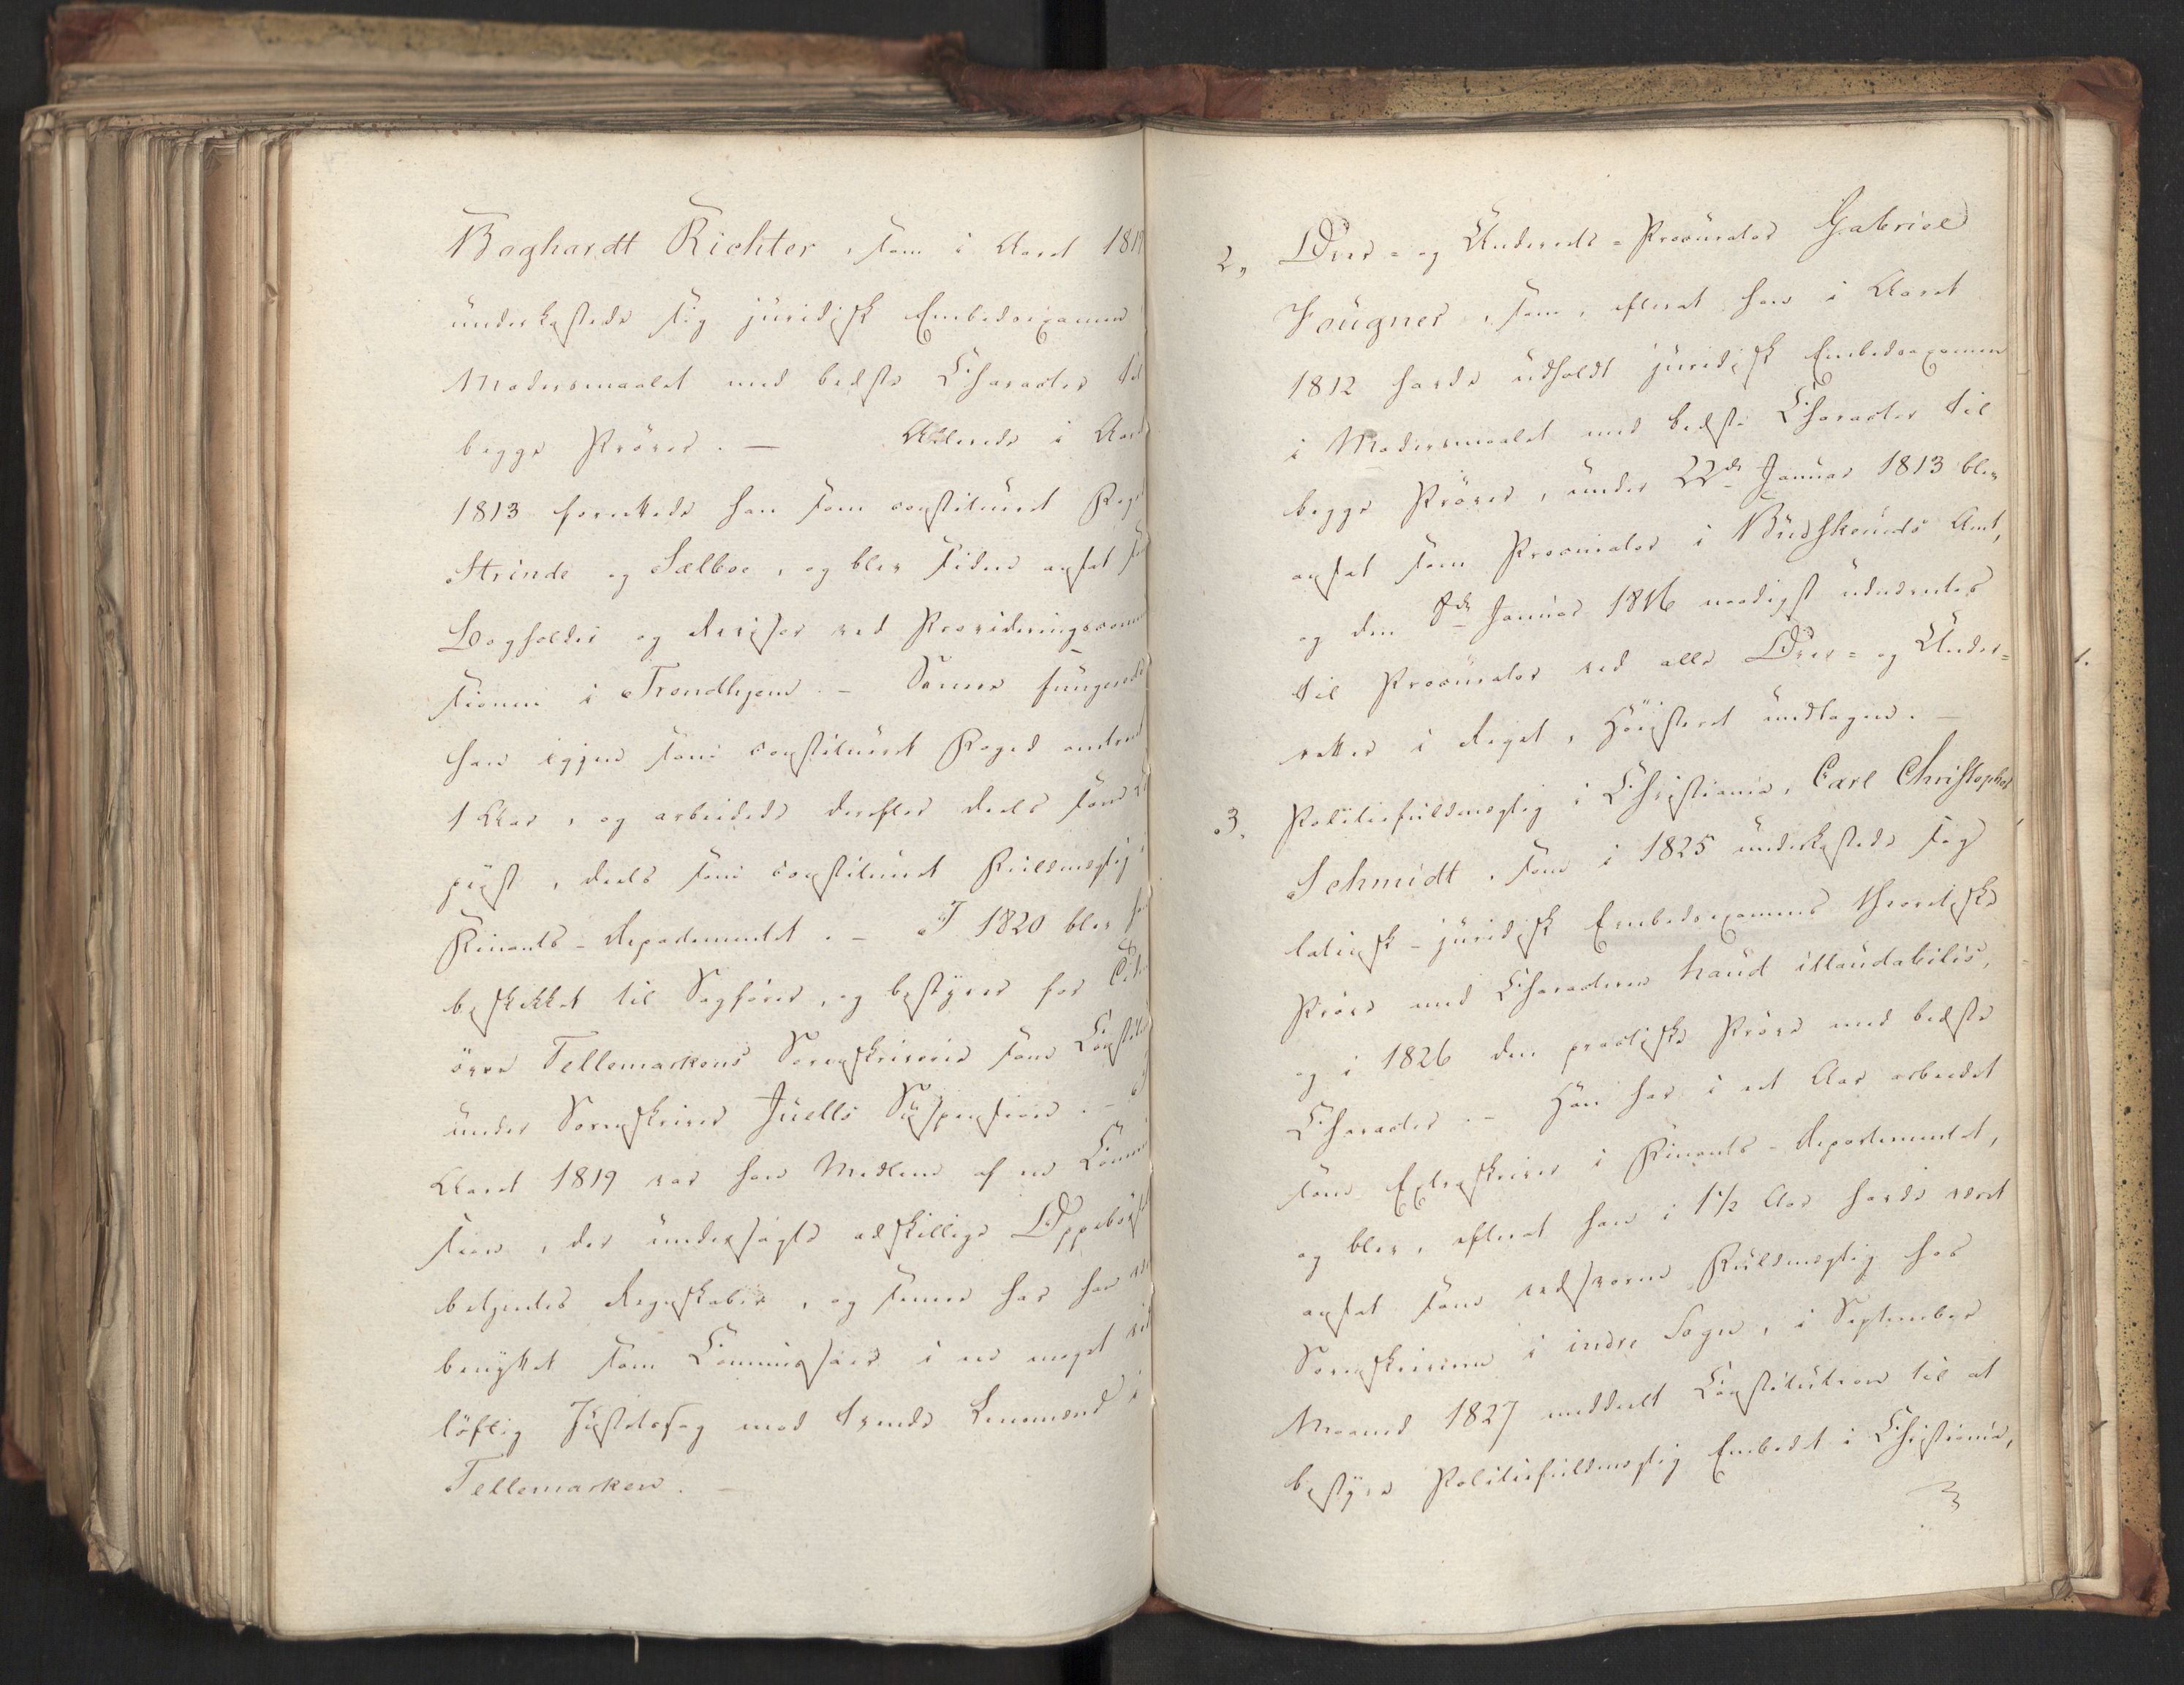 Boghardt Richter, som i Aaret 181
underkastede sig juridisk Embedsexamen
Modersmaalet med bedste Character til
begge Prøver. — Allerede i Aar
1813 forrettede han som constitueret Fog
Strinde og Sælboe, og blev siden ansat s
Bogholder og Revisor ved Provideringscom
sionen i Trondhjem. — Senere fungerede
han igjen som constitueret Foged omtrent
1 Aar, og arbeidede derefter deels som
piist, deels som constitueret Fuldmægtig
Finants-Departementet. — I 1820 blev h
beskikket til Sagfører, og bestyrer for Tide
øvre Tellemarkens Sorenskriverie som Constit
under Sorenskriver Juells Suspension. —
Aaret 1819 var han Medlem af en Commis
sion, der undersøgte adskillige Oppebørsel
betjentes Regnskaber, og senere har han
benyttet som Commissair i en meget vid
løftig Justitssag mod trende Lensmænd i
Tellemarken. —
2, Over- og Underrets-Procurator Gabriel
Fougner, som, efterat han i Aaret
1812 havde udholdt juridisk Embedsexamen
i Modersmaalet med bedste Character til
begge Prøver, under 22de Januar 1813 blev
ansat som Procurator i Budskeruds Amt,
og den 8de Januar 1816 naadigst udnævntes
til Procurator ved alle Over- og Under-
retter i Riget, Høiesteret undtagen. —
3. Politiefuldmægtig i Christiania, Carl Christopher
Schmidt, som i 1825 underkastede sig
latinsk-juridisk Embedsexamens theoretiske
Prøve med Characteren haud illaudabilis,
og i 1826 den practiske Prøve med bedste
Character. — Han har i et Aar arbeidet
som Extraskriver i Finants-Departementet,
og blev, efterat han i 1½ Aar havde været
ansat som edsvoren Fuldmægtig hos
Sorenskriveren i indre Sogn, i September
Maaned 1827 meddeelt Constitution til at
bestyre Politiefuldmægtig Embedet i Christiania,